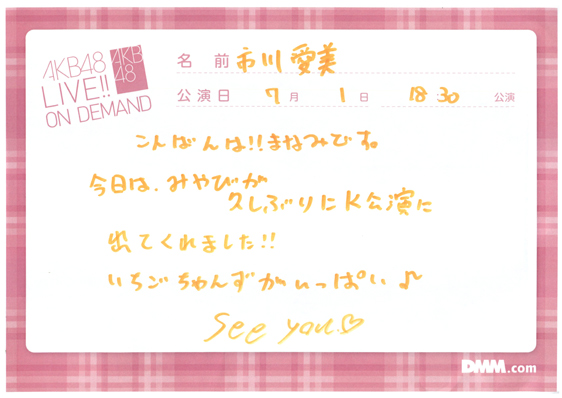 AKB48
LIVE!!
ON DEMAND
AKB
48
名 前 市川愛美
公演日 7月 1日 18:30 公演
こんばんは!!まなみです。
今日は、みやびが
久しぶりにK公演に
出てくれました!!
いちごちゃんずがいっぱい♪
See you♡
DMM.com